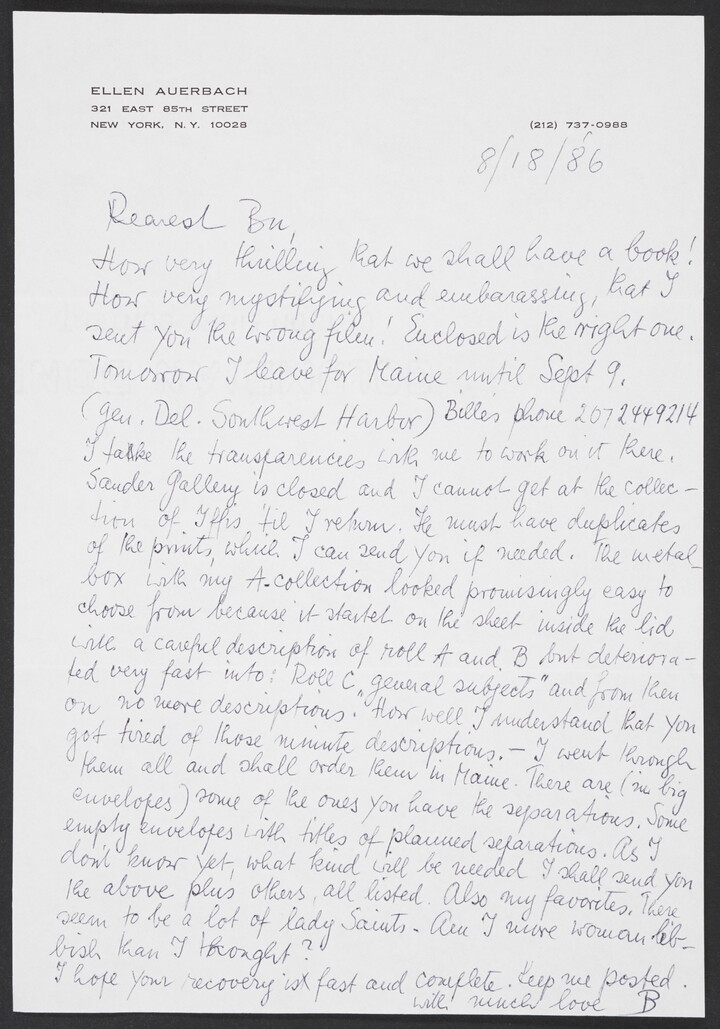 ELLEN AUERBACH
321 EAST 85TH STREET
NEW YORK, N.Y. 10028
(212) 737-0988
8/18/86
Dearest Bu,
How very thrilling that we shall have a book!
How very mystifying and embarassing, that I
sent you the wrong film! Enclosed is the right one.
Tomorrow I leave for Maine until Sept 9.
(gen. Del. Southwest Harbor) Billie's phone 207 2449214
I take the transparencies with me to work on it there.
Sander Gallery is closed and I cannot get at the collec-
tion of 'til I return. He must have duplicates
of the prints, which I can send you if needed. The metal
box with my A-collection looked promisingly easy to
choose from because it startet on the sheet inside the lid
with a careful description of roll A and B but deteriora-
ted very fast into: Roll C „general subjects" and from then
on no more descriptions. How well I understand that you
got tired of those minute descriptions. — I went through
them all and shall order them in Maine. There are (in big
envelopes) some of the ones you have the separations. Some
empty envelopes with titles of planned separations. As I
don't know yet, what kind will be needed I shall send you
the above plus others, all listed. Also my favorites. There
seem to be a lot of lady Saints - Am I more woman lib-
bish than I thought?
I hope your recovery is fast and complete. Keep me posted.
with much love B